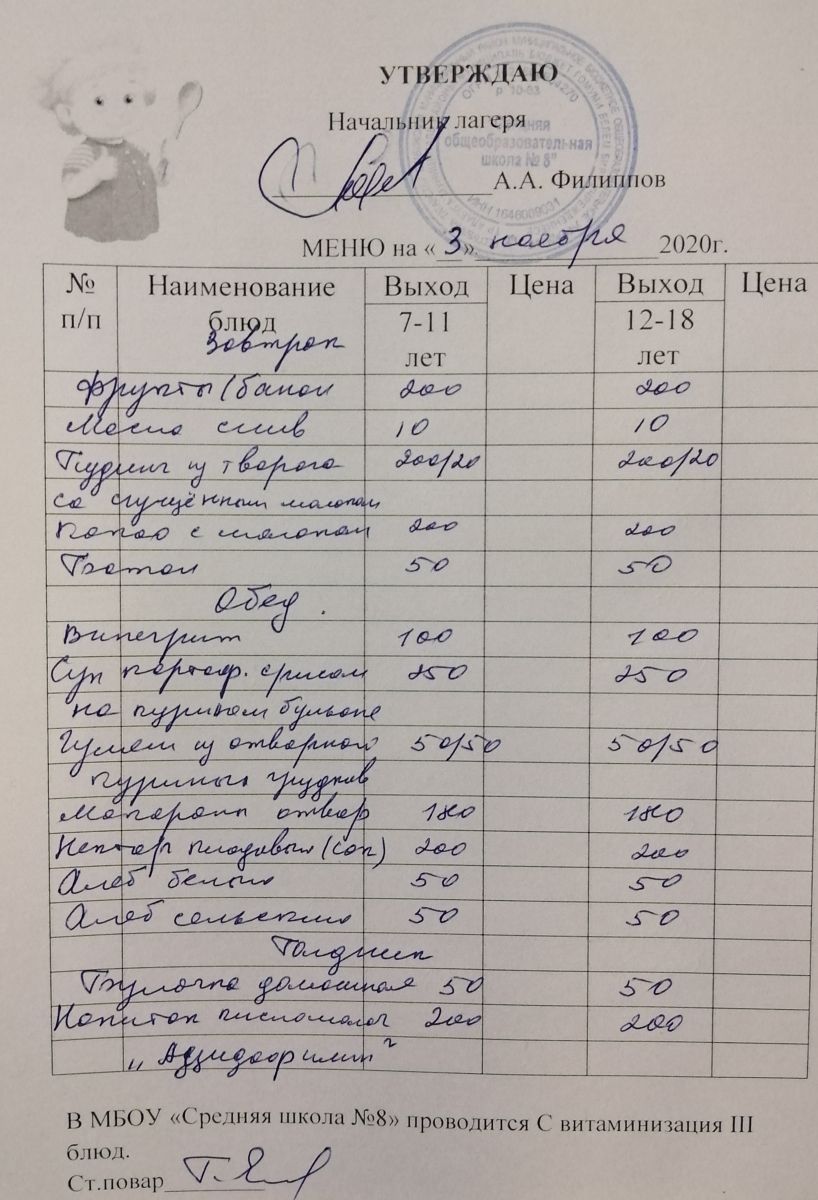 УТВЕРЖДАЮ
Начальник лагеря
А.А. Филиппов
средняя
общеобразовательная
школа № 8"
ИНН 1646009031
МЕНЮ на «3» ноября 2020г.
№ п/п Наименование блюд Выход 7-11 лет Цена Выход 12-18 лет Цена
Завтрак
Фрукты/банан 200 200
Масло слив 10 10
Пудинг из творога 200/20 200/20
со сгущённым молоком
Какао с молоком 200 200
Батон 50 50
Обед.
Винегрит 100 100
Суп картоф. с рисом 250 250
на курином бульоне
Гуляш из отварного 50/50 50/50
куриных грудков
Макароны отвар 180 180
Нектар плодовый (сок) 200 200
Хлеб белый 50 50
Хлеб сельский 50 50
Полдник
Булочка домашняя 50 50
Напиток кисломолоч 200 200
"Ацидофилин"
В МБОУ «Средняя школа №8» проводится С витаминизация III
блюд.
Ст.повар